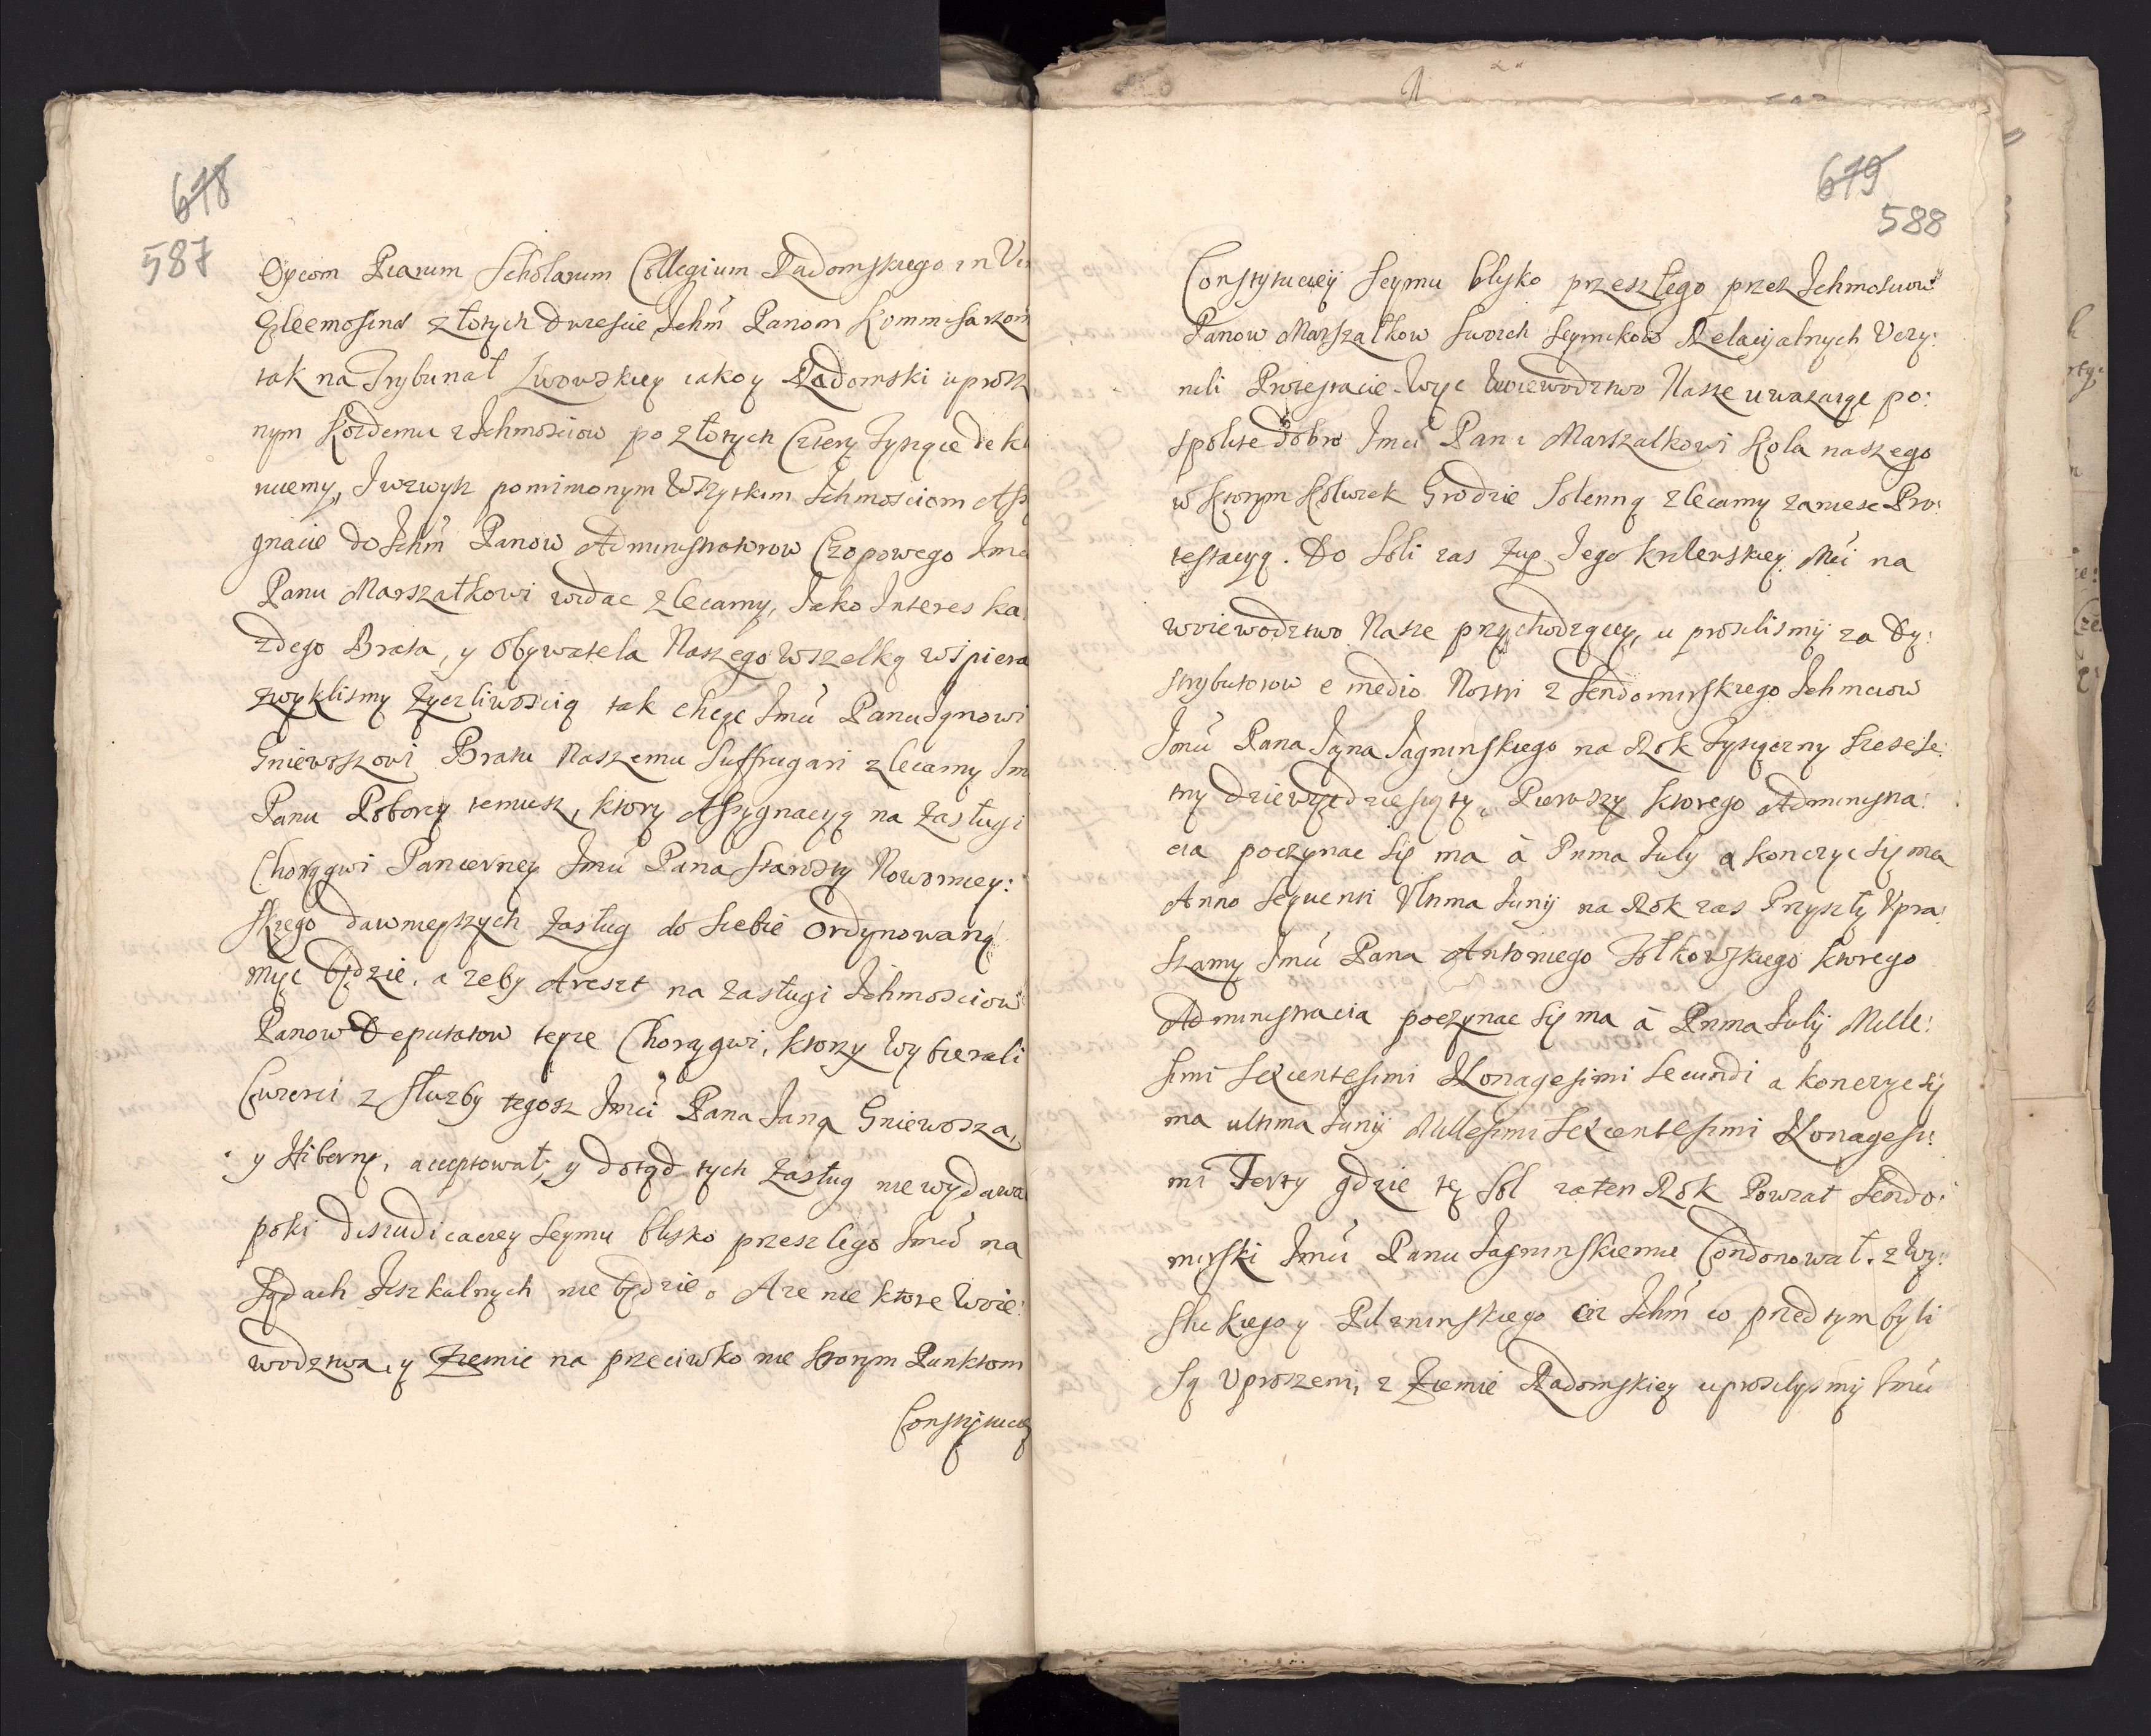 678
587
Oycom Piarum Scholarum Collegium Radomskiego in Vim
Eleemosinæ złotych dwiescie Ichm̃ Panom Kommisarzom
tak na Trybunał Lwowskiey iako y Radomski uprosz
nym Kozdemu z Ichmosciow po złotych Cztery Tysiące dekl
ruiemy, I wzwysz pomimonym Wszytkim Ichmosciom Assy
gnacie do Ichm̃ Panow Administratorow Czopowego Imc
Panu Marszałkowi wÿdac zlecamy, Iako Interes ka
zdego Brata, y obywatela Naszego Wszelką wspiera
zwyklismy życzliwoscią tak chcąc Imći Panu Janowi
Gniewoszowi Bratu Naszemu Suffragari zlecamy Im
Panu Poborcy temusz, ktory Assygnacyą na zasługi
Chorągwi Pancerney Imći Pana Starosty Nowomiey:
skiego dawnieyszych zasług do siebie ordynowaną
mieć będzie, azeby Areszt na zasługi Ichmosciow
Panow Deputatow teyze Chorągwi, ktorzy Wybierali
Cwierci z służby tegosz Imći Pana Jana Gniewosza,
y Hiberny, acceptował, y dotąd tych zasług nie wydawa
poki disiudicaciey Seymu blisko przeszlego Imći na
Sądach Fiszkalnych nie będzie, Aze nie ktore Woie:
wodztwa, y Ziemie na przeciwko nie ktorym Punktom
Constÿtuciey
679
588
Constytuciey Seymu blisko przeszłego przez Ichmosciow
Panow Marszałkow swoich Seymikow Relacÿalnych Uczy:
nili Protestacie Więc Woiewodztwo Nasze uwazaiąc po:
spolite dobro Imći Panu Marszałkowi Koła naszego
w ktorym kolwiek Grodzie Solenną zlecamy zaniesc Pro:
testacyą. Do Soli zas żup Jego Krolerskiey Mći na
woiewodztwo Nasze przychodzącey, uprosilismÿ za Dy:
strybutorow e medio Nostri z Sendomirskiego Ichmciow
Imći Pana Jana Jagninskiego na Rok Tysiączny Szescse:
tny dziewięcdziesiąty Pierwszy ktorego Administra:
cia poczynac się ma à Prima July a konczyc się ma
Anno Sequenti Vltima Junij na Rok zas Przyszły Vpra:
szamy Imći Pana Antoniego Żołkowskiego ktorego
Administracia poczynac się ma à Prima Julij Mille:
simi Sexcentesimi Nonagesimi Secundi a konczyc się
ma ultima Junij Millesimi Sexcentesimi Nonagesi:
mi Terty gdzie tę sol za ten Rok Powiat Sendo:
mirski Imći Panu Jagninskiemu Condonował. z Wy:
slickiego y Pilzninskiego ciz Ichm̃ co przed tym byli
Są Uproszeni, z Ziemie Radomskiey uprosilysmÿ Imći